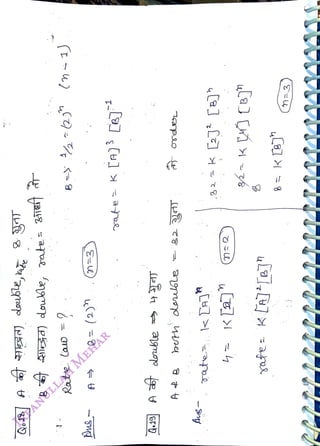 Q.28 A की सान्द्रता double, rate 8 गुना
B की सान्द्रता double, rate = आधी तो
Rate law = ?
Ans- A ⇒ 8 = (2)ⁿ n=3 B ⇒ 1/2 = (2)ⁿ (n-1)
rate = K [A]³ [B]⁻¹
Q.29 A की double ⇒ 4 गुना
A & B both double = 32 गुना तो order
Ans- rate = K [A]ⁿ
4 = K [2]ⁿ n=2
rate = K [A]² [B]ⁿ
32 = K [2]² [B]ⁿ
32 = K [4] [B]ⁿ
8
8 = K [B]ⁿ
n=3
MEHAR